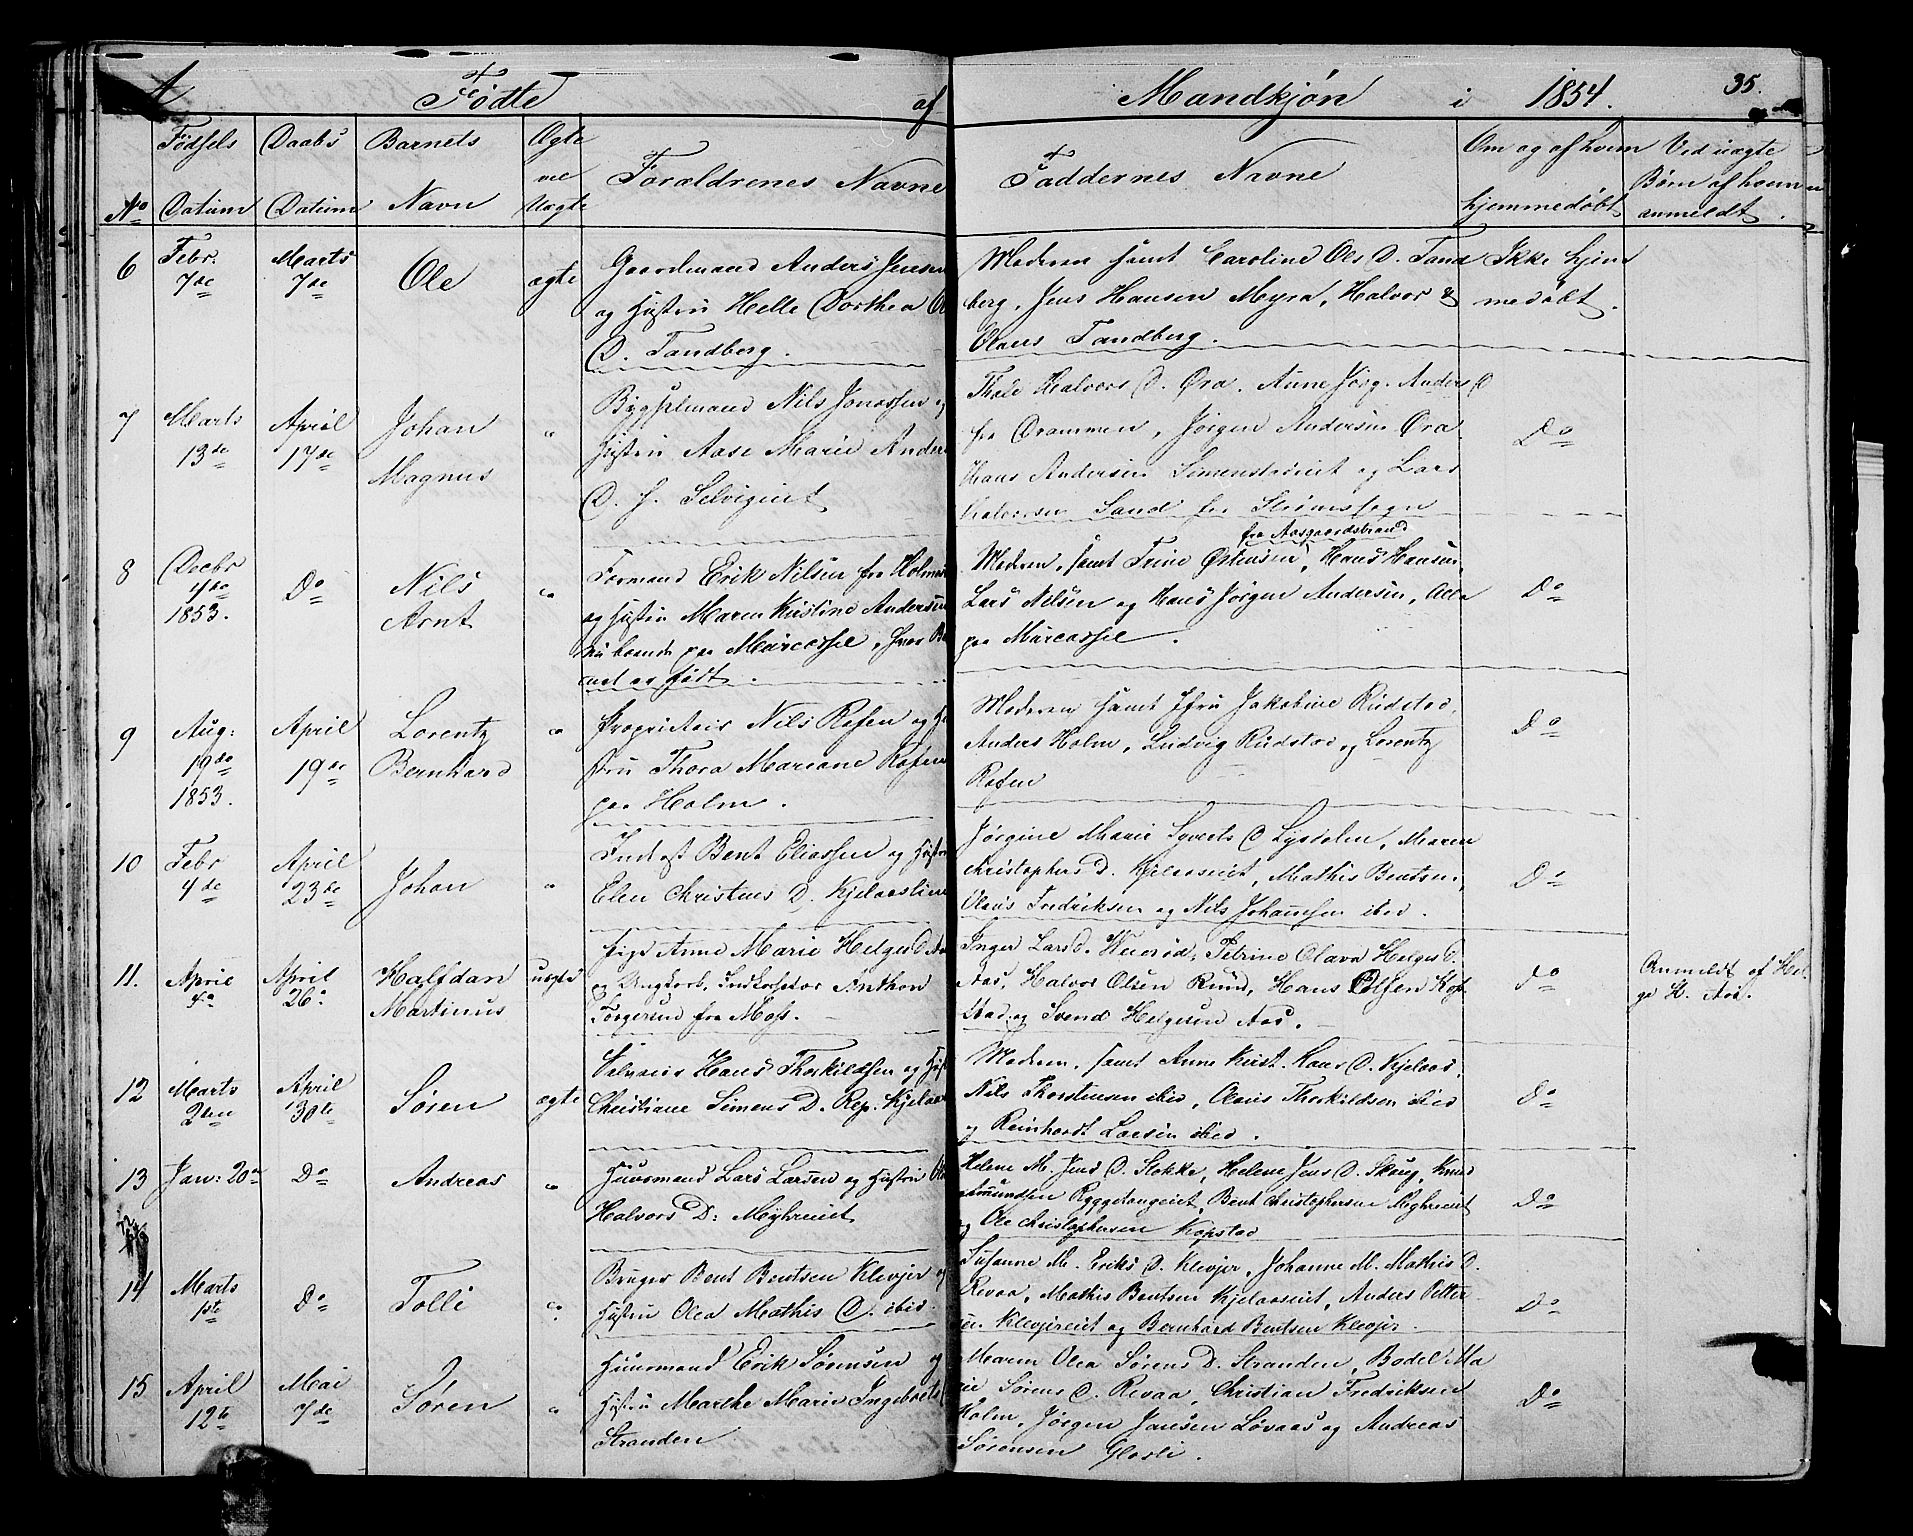 Fødte af Mandkjøn i 1854. 35.
No
Fødsels Datum
Daabs Datum
Barnets Navn
Ægte ell Uægte
Forældrenes Navne
Faddernes Navne
Om og af hvem hjemmedøbt
Ved uægte Børn af hvem anmeldt.
6
Febr. 7de
Marts 7de
Ole
ægte
Gaardmand Anders Jensen
og Hustru Helle Dorthea
D. Tandberg.
Moderen samt Caroline Ols D. Tand
berg, Jens Hansen Myra, Halvor &
Olaus Tandberg.
Ikke hjem
medøbt.
7
Marts 13de
April 17de
Johan
Magnus
"
Bygselmand Nils Jonassen
Hustru Aase Marie Anders
D. f. Selvigeiet
Thale Halvors D. Øra, Anne Jørg. Anders D
fra Drammen, Jørgen Andersen Øra
Hans Andersen Simenstadeiet og Lars
Halvorsen Sand fra Strømssogn
Do
8
Decbr 4de 1853.
Do
Nils
Arnt
"
Formand Erik Nilsen fra Holme
og Hustru Maren Kirstine Andersen
nu boende paa Mulvassel, hvor
net er født.
fra Aasgaardstrand
Moderen, samt Trine Østensen, Hans Hansen,
Lars Nilsen og Hans Jørgen Andersen, Alle
paa
Do
9
Aug: 19de 1853.
April 19de
Lorentz
Bernhard
"
Proprietair Nils Rafen og
stru Thora Mariane Rafen
paa Holm.
Moderen samt Jfru Jakobine Rudstad,
Anders Holm, Ludvig Rudstad og Lorentz
Rafen
Do
10
Febr 4de
April 23de
Johan
"
Inderst Bent Eliassen og Hustru
Elen Christens D. Kjelaaslien
Jørgine Marie Syverts D Lysdalen, Maren
Christophers D. Kjelaaseiet, Mathis Bentsen,
Olaus Fredriksen og Nils Johannsen ibid.
Do
11.
April 4o
April 26o
Halfdan
Martinus
uægte
Pige Anne Marie Helges D.
og Ungkarl, Anthon
Torgersen fra Moss.
Inger Lars D. Petrine Olava Helges D.
Aas, Halvor Olsen Rund, Hans Olsen Kop
stad og Svend Helgesen Aas.
Do
Anmeldt af Hel
ge H. Aas.
12
Marts 2den
April 30te
Søren
ægte
Selveier Hans Thorkildsen og
Christiane Simens D. Rep. Kjelaas
Moderen, samt Anne Kirst. Hans D. Kjelaas,
Nils Thorstensen ibid, Olaus Thorkildsen ibid
og Reinhardt Larsen ibid.
Do
13
Jan: 20de
Do
Andreas
"
Huusmand Lars Larsen og Hustru
Halvors D: Myhreeiet
Helene M. Jens D. Stokke, Helene Jens D. Skoug, Knud
Bent Christophersen Myhreeiet
og Ole Christophersen Kopstad
Do
14
Marts 1ste
Do
Tolli
"
Bruger Bent Bentsen Klevjer og
Hustru Olea Mathis D. ibid.
Susanne M. Eriks D. Klevjer, Johanne M. Mathis D.
Revaa, Mathis Bentsen Kjelaaseiet, Anders Petter
sen Klevjereiet og Bernhard Bentsen Klevjer.
Do
15
April 12te
Mai 7de
Søren
"
Huusmand Erik Sørensen og
Hustru Marthe Marie Ingebrets
Stranden
Maren Olea Sørens D. Stranden, Bodel Ma
rie Sørens D. Revaa, Christian Fredriksen
Holm, Jørgen Jansen Løvaas og Andreas
Sørensen Glosli.
Do